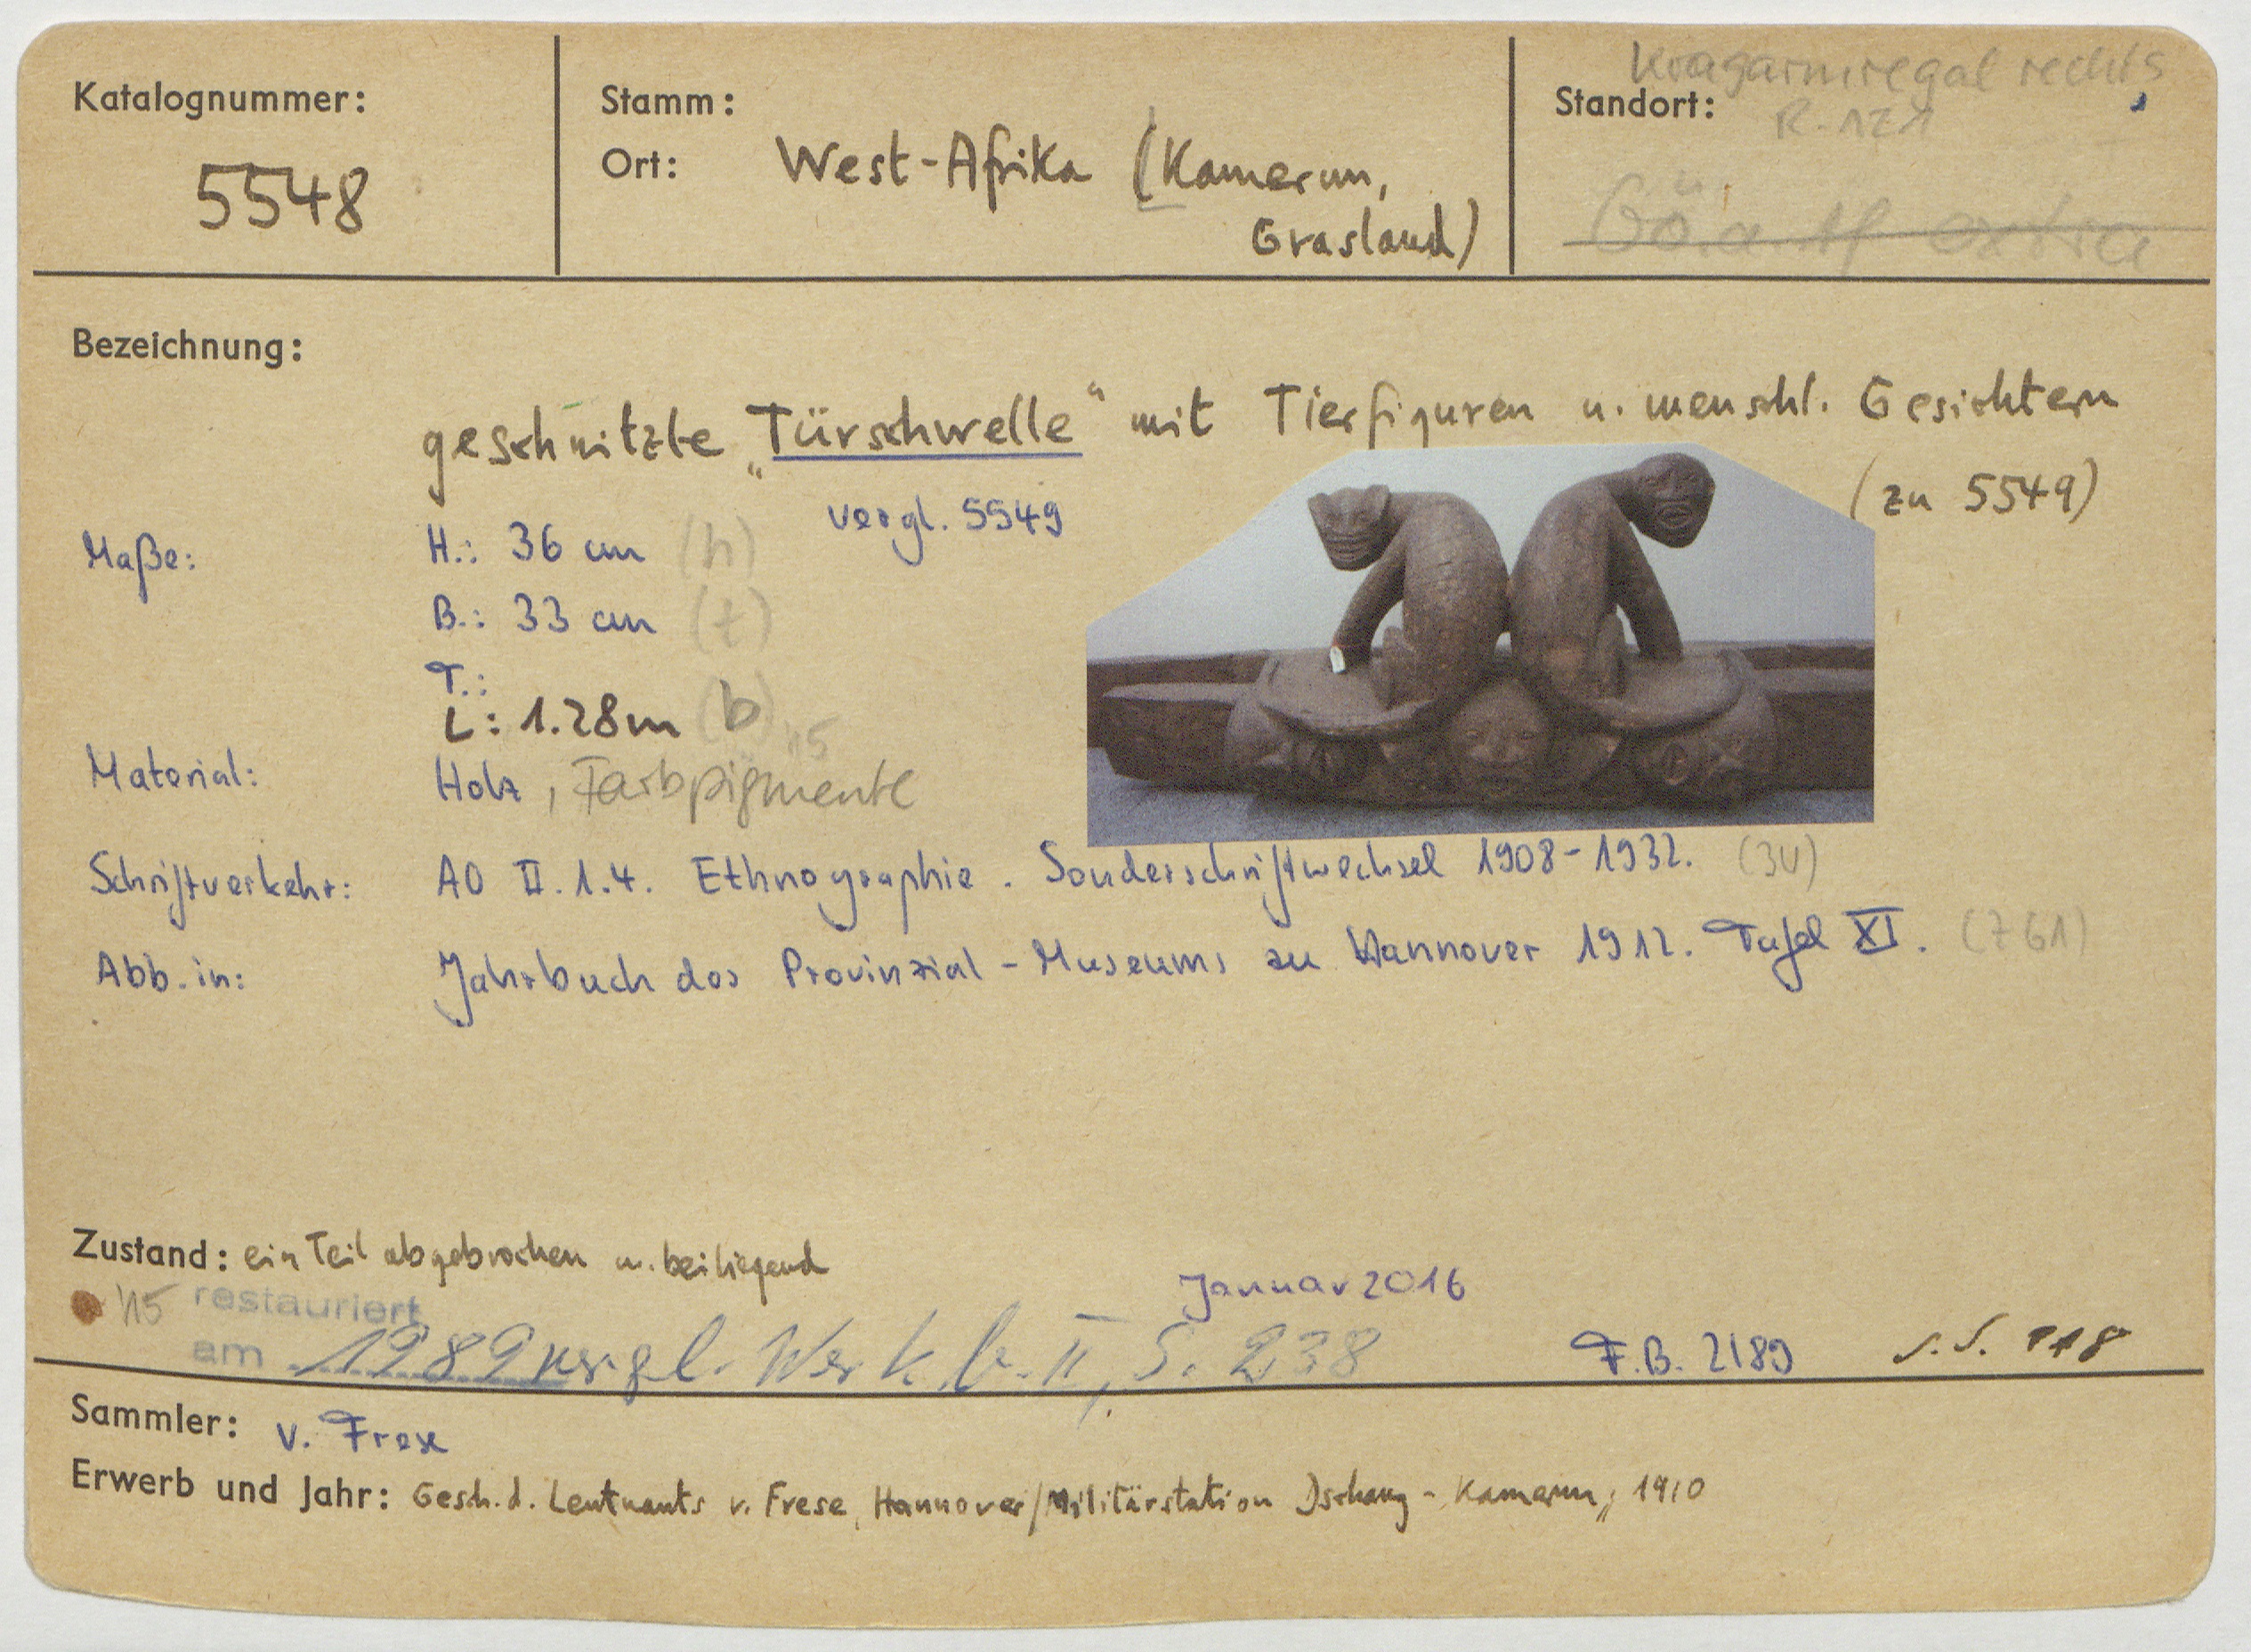 Katalognummer:
5548
Stamm:
Ort: West-Afrika (Kamerun,
Grasland)
Kragarmregal rechts
Standort:
R-121
Bezeichnung:
geschnitzte „Türschwelle“ mit Tierfiguren u. menschl. Gesichtern
(zu 5549)
vergl. 5549
Maße: H.: 36 cm (h)
B.: 33 cm (t)
T.:
L: 1.28m (b)
Material: Holz, Farbpigmente
Schriftverkehr: AO II.1.4. Ethnographie. Sonderschriftwechsel 1908-1932.
Abb. in: Jahrbuch des Provinzial-Museums zu Hannover 1912. Tafel XI. (761)
Zustand: ein Teil abgebrochen u. beiliegend
restauriert
am 1989 vergl. Werkb. II, S. 238
Januar 2016
F.B. 2189
s.S. 118
Sammler: v. Frese
Erwerb und Jahr: Gesch. d. Leutnants v. Frese, Hannover/Militärstation Dschang-Kamerun, 1910